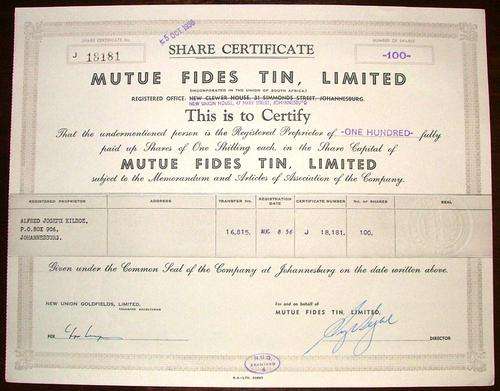 SHARE CERTIFICATE NO.
J 18181
25 OCT 1956
SHARE CERTIFICATE
NUMBER OF SHARES
-100-
MUTUE FIDES TIN, LIMITED
(INCORPORATED IN THE UNION OF SOUTH AFRICA)
REGISTERED OFFICE: NEW CLEWER HOUSE, 31 SIMMONDS STREET, JOHANNESBURG
NEW UNION HOUSE, 47 MAIN STREET, JOHANNESBURG
This is to Certify
That the undermentioned person is the Registered Proprietor of -ONE HUNDRED- fully
paid up Shares of One Shilling each, in the Share Capital of
MUTUE FIDES TIN, LIMITED
subject to the Memorandum and Articles of Association of the Company.
REGISTERED PROPRIETOR ADDRESS TRANSFER NO. REGISTRATION DATE CERTIFICATE NUMBER NO. OF SHARES SEAL
ALFRED JOSEPH
P.O.BOX 906,
JOHANNESBURG.
16,815. AUG 8 56 J 18,181. 100.
Given under the Common Seal of the Company at Johannesburg on the date written above.
NEW UNION GOLDFIELDS, LIMITED,
TRANSFER SECRETARIES
For and on behalf of
MUTUE FIDES TIN, LIMITED.
PER
DIRECTOR
N.U.G.
EXAMINED
4